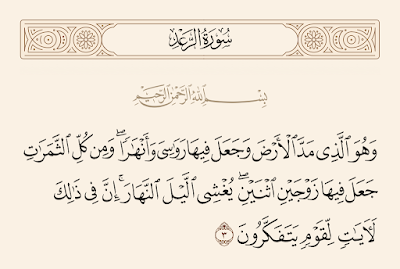 سُورَةُ الرَّعْدِ
بِسْمِ اللَّهِ الرَّحْمَٰنِ الرَّحِيمِ
وَهُوَ ٱلَّذِى مَدَّ ٱلْأَرْضَ وَجَعَلَ فِيهَا رَوَٰسِىَ وَأَنْهَٰرًا ۖ وَمِن كُلِّ ٱلثَّمَرَٰتِ
جَعَلَ فِيهَا زَوْجَيْنِ ٱثْنَيْنِ ۖ يُغْشِى ٱلَّيْلَ ٱلنَّهَارَ ۚ إِنَّ فِى ذَٰلِكَ
لَءَايَٰتٍ لِّقَوْمٍ يَتَفَكَّرُونَ ٣